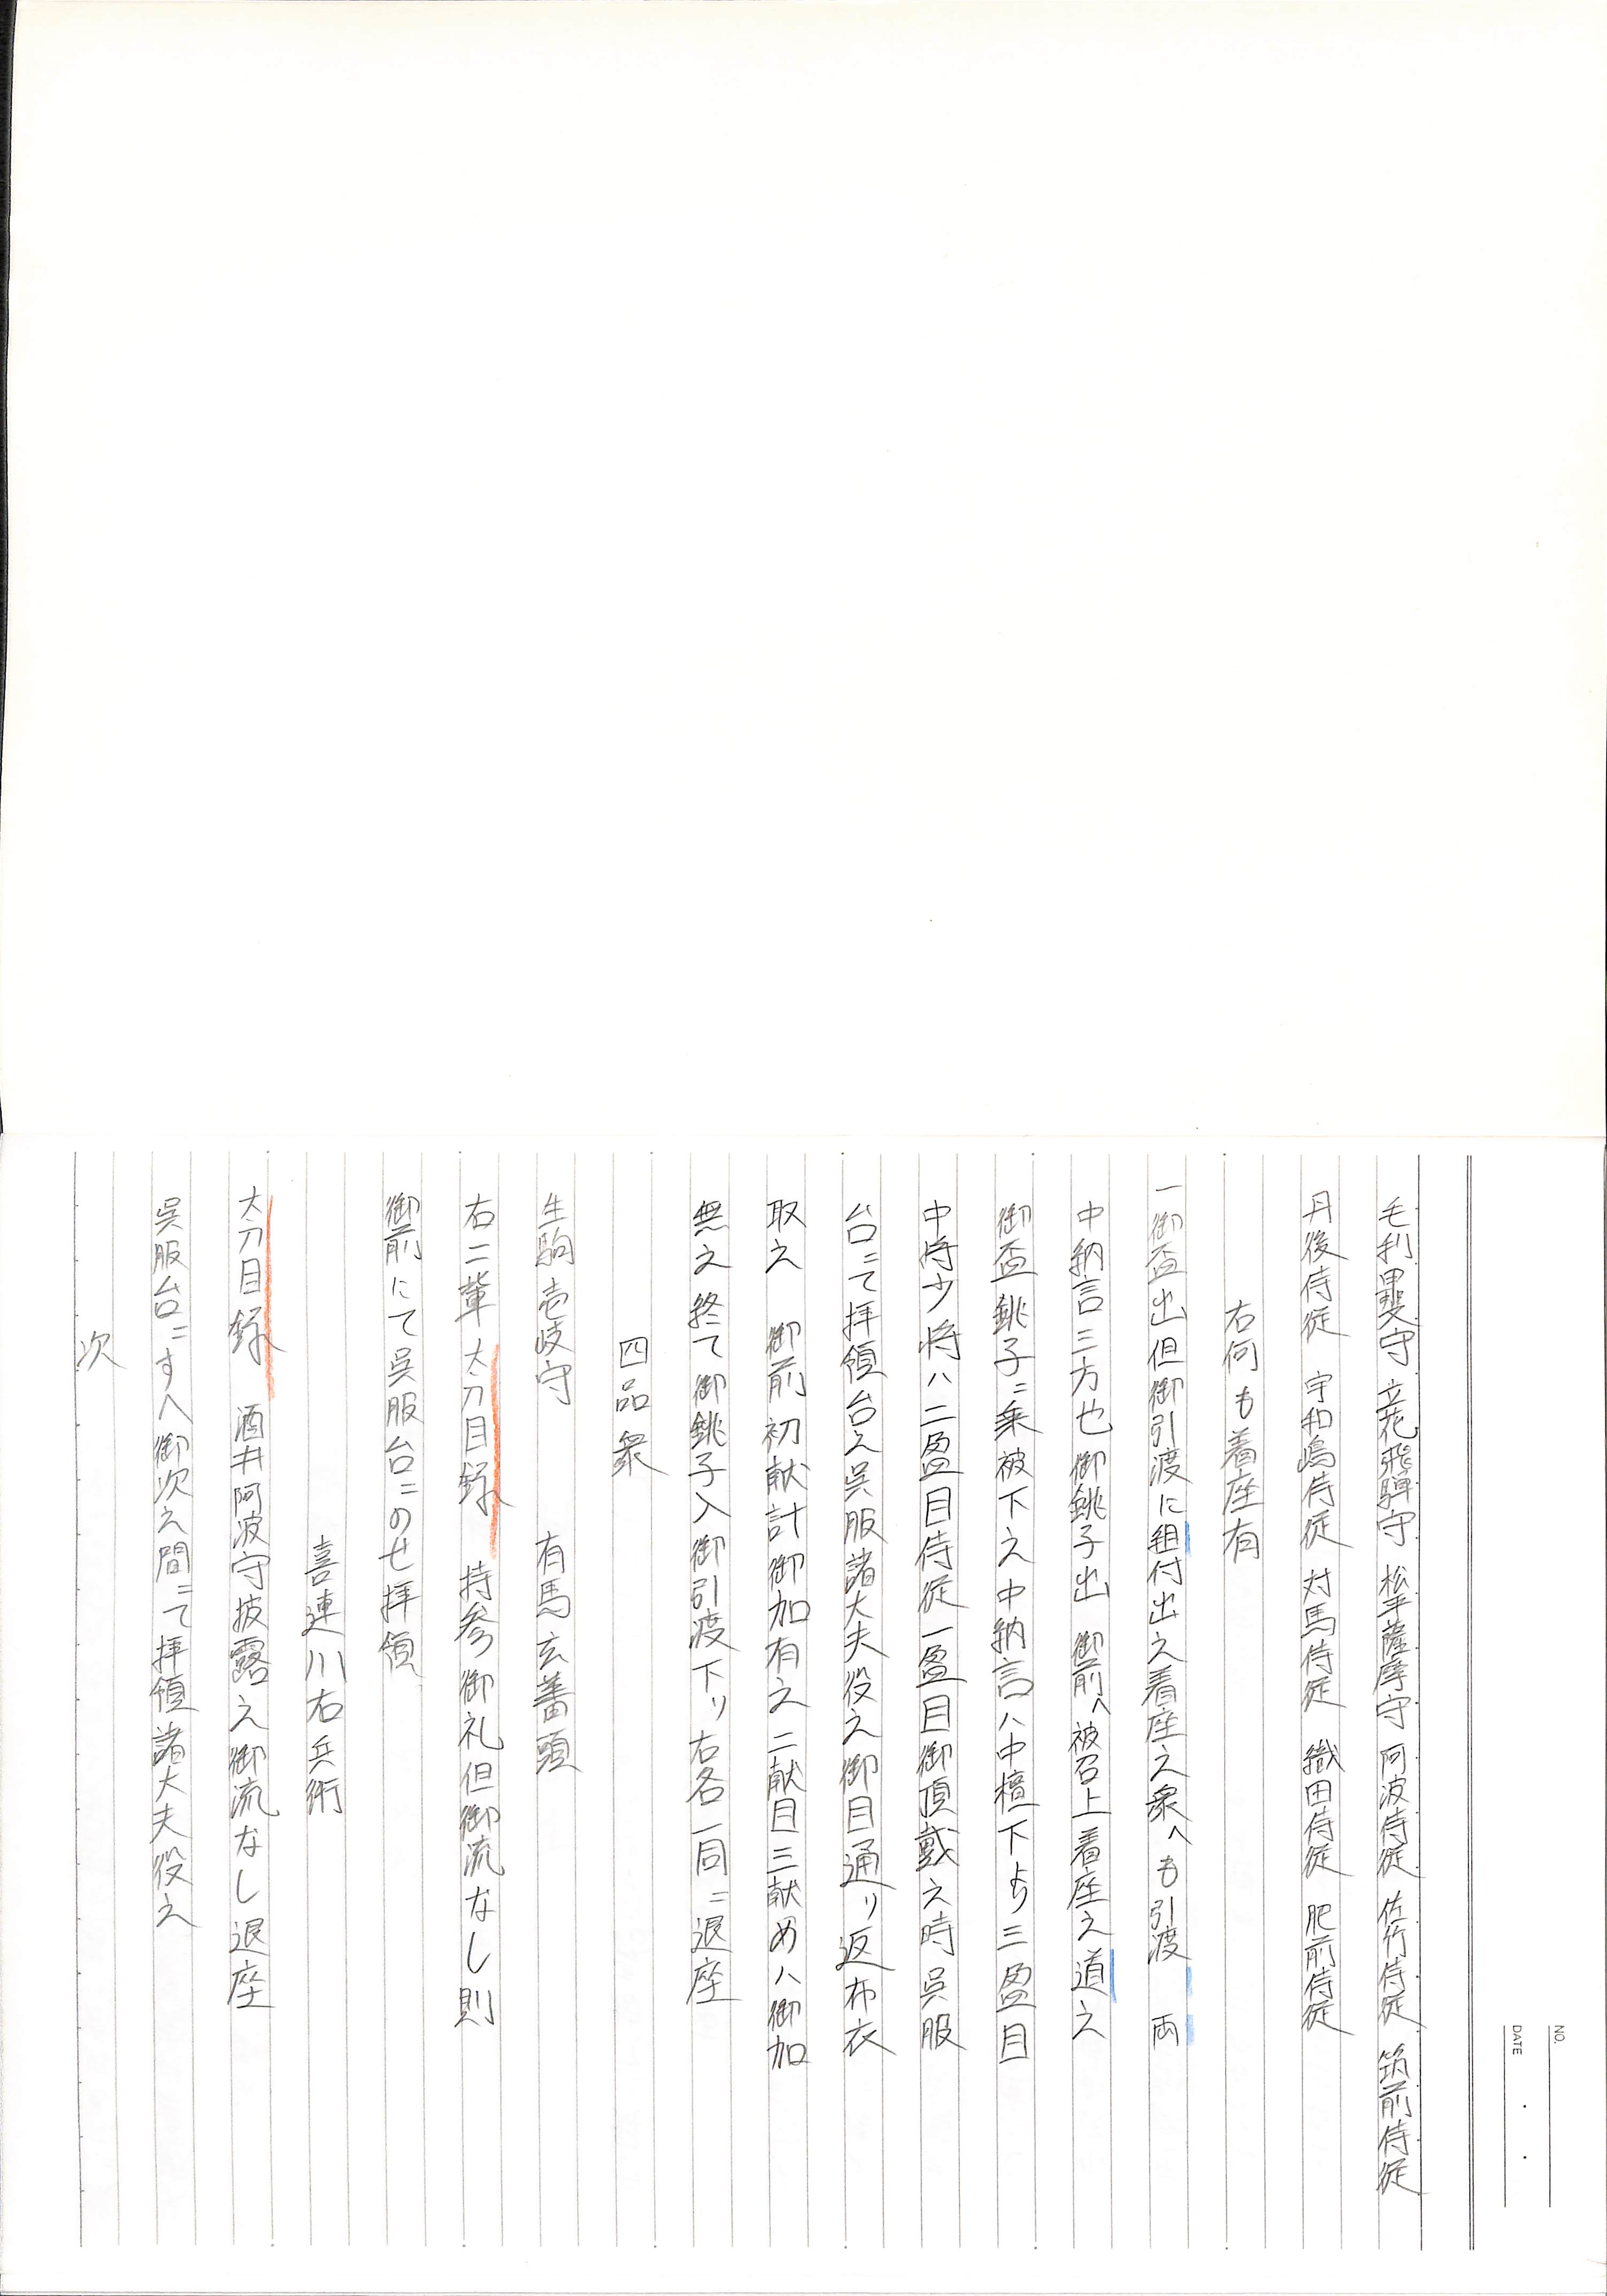 NO.
DATE
毛利甲斐守 立花飛騨守 松平薩摩守 阿波侍従 佐竹侍従 筑前侍従
丹後侍従 宇和嶋侍従 対馬侍従 織田侍従 肥前侍従
右何も着座有
一御盃出但御引渡に組付出之着座之衆へも引渡 両
中納言三方也 御銚子出 御前へ被召上着座之道え
御盃銚子ニ乗被下之中納言ハ中檀下より三盈目
中将少将ハ二盈目侍従一盈目御頂戴之時呉服
台ニて拝領台之呉服諸大夫役之御目通り返布衣
取之 御前初献計御加有之二献目三献めハ御加
無之終て御銚子入御引渡下り右各一同ニ退座
四品衆
生駒壱岐守 有馬玄蕃頭
右二輩太刀目録 持参御礼但御流なし則
御前にて呉服台ニのせ拝領
喜連川右兵衛
太刀目録 酒井阿波守披露之御流なし退座
呉服台ニすへ御次之間ニて拝領諸大夫役之
次